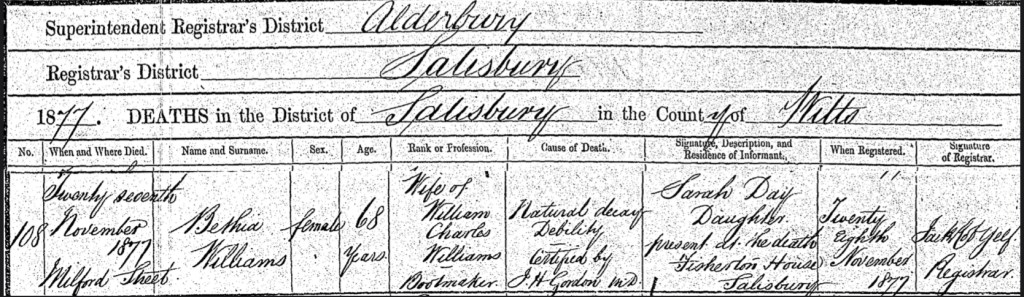 Superintendent Registrar's District Alderbury
Registrar's District Salisbury
1877. DEATHS in the District of Salisbury in the County of Wilts
No. When and Where Died. Name and Surname. Sex. Age. Rank or Profession. Cause of Death. Signature, Description, and Residence of Informant. When Registered. Signature of Registrar.
108
Twenty seventh
November
1877
Milford Street
Bethia
Williams
female
68
Years
Wife of
William
Charles
Williams
Bootmaker
Natural decay
Debility
Certified by
J. H Gordon M.D.
Sarah Day
Daughter
present at the death
Fisherton House
Salisbury
Twenty
Eighth
November
1877
Yelf
Registrar.